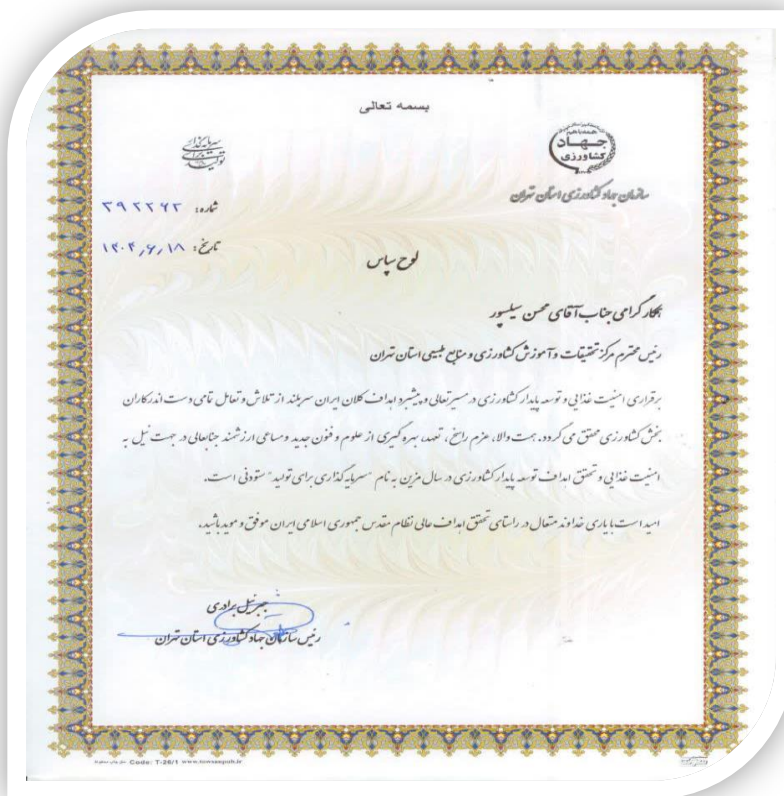 بسمه تعالی
جهاد
کشاورزی
سرمایه‌گذاری
برای
تولید
سازمان جهاد کشاورزی استان تهران
شماره: ۳۹۲۲۶۲
تاریخ: ۱۴۰۴٫۶٫۱۸
لوح سپاس
همکار گرامی جناب آقای محسن سیلسپور
رئیس محترم مرکز تحقیقات و آموزش کشاورزی و منابع طبیعی استان تهران
برقراری امنیت غذایی و توسعه پایدار کشاورزی در مسیر تعالی و پیشبرد اهداف کلان ایران سربلند از تلاش و تعامل تمامی دست اندرکاران
بخش کشاورزی محقق می گردد. همت والا، عزم راسخ، تعهد، بهره گیری از علوم و فنون جدید و مساعی ارزشمند جنابعالی در جهت نیل به
امنیت غذایی و تحقق اهداف توسعه پایدار کشاورزی در سال مزین به نام "سرمایه گذاری برای تولید" ستودنی است.
امید است با یاری خداوند متعال در راستای تحقق اهداف عالی نظام مقدس جمهوری اسلامی ایران موفق و موید باشید.
جبرئیل برادری
رئیس سازمان جهاد کشاورزی استان تهران
Code: T-26/1 www.towsanpub.ir